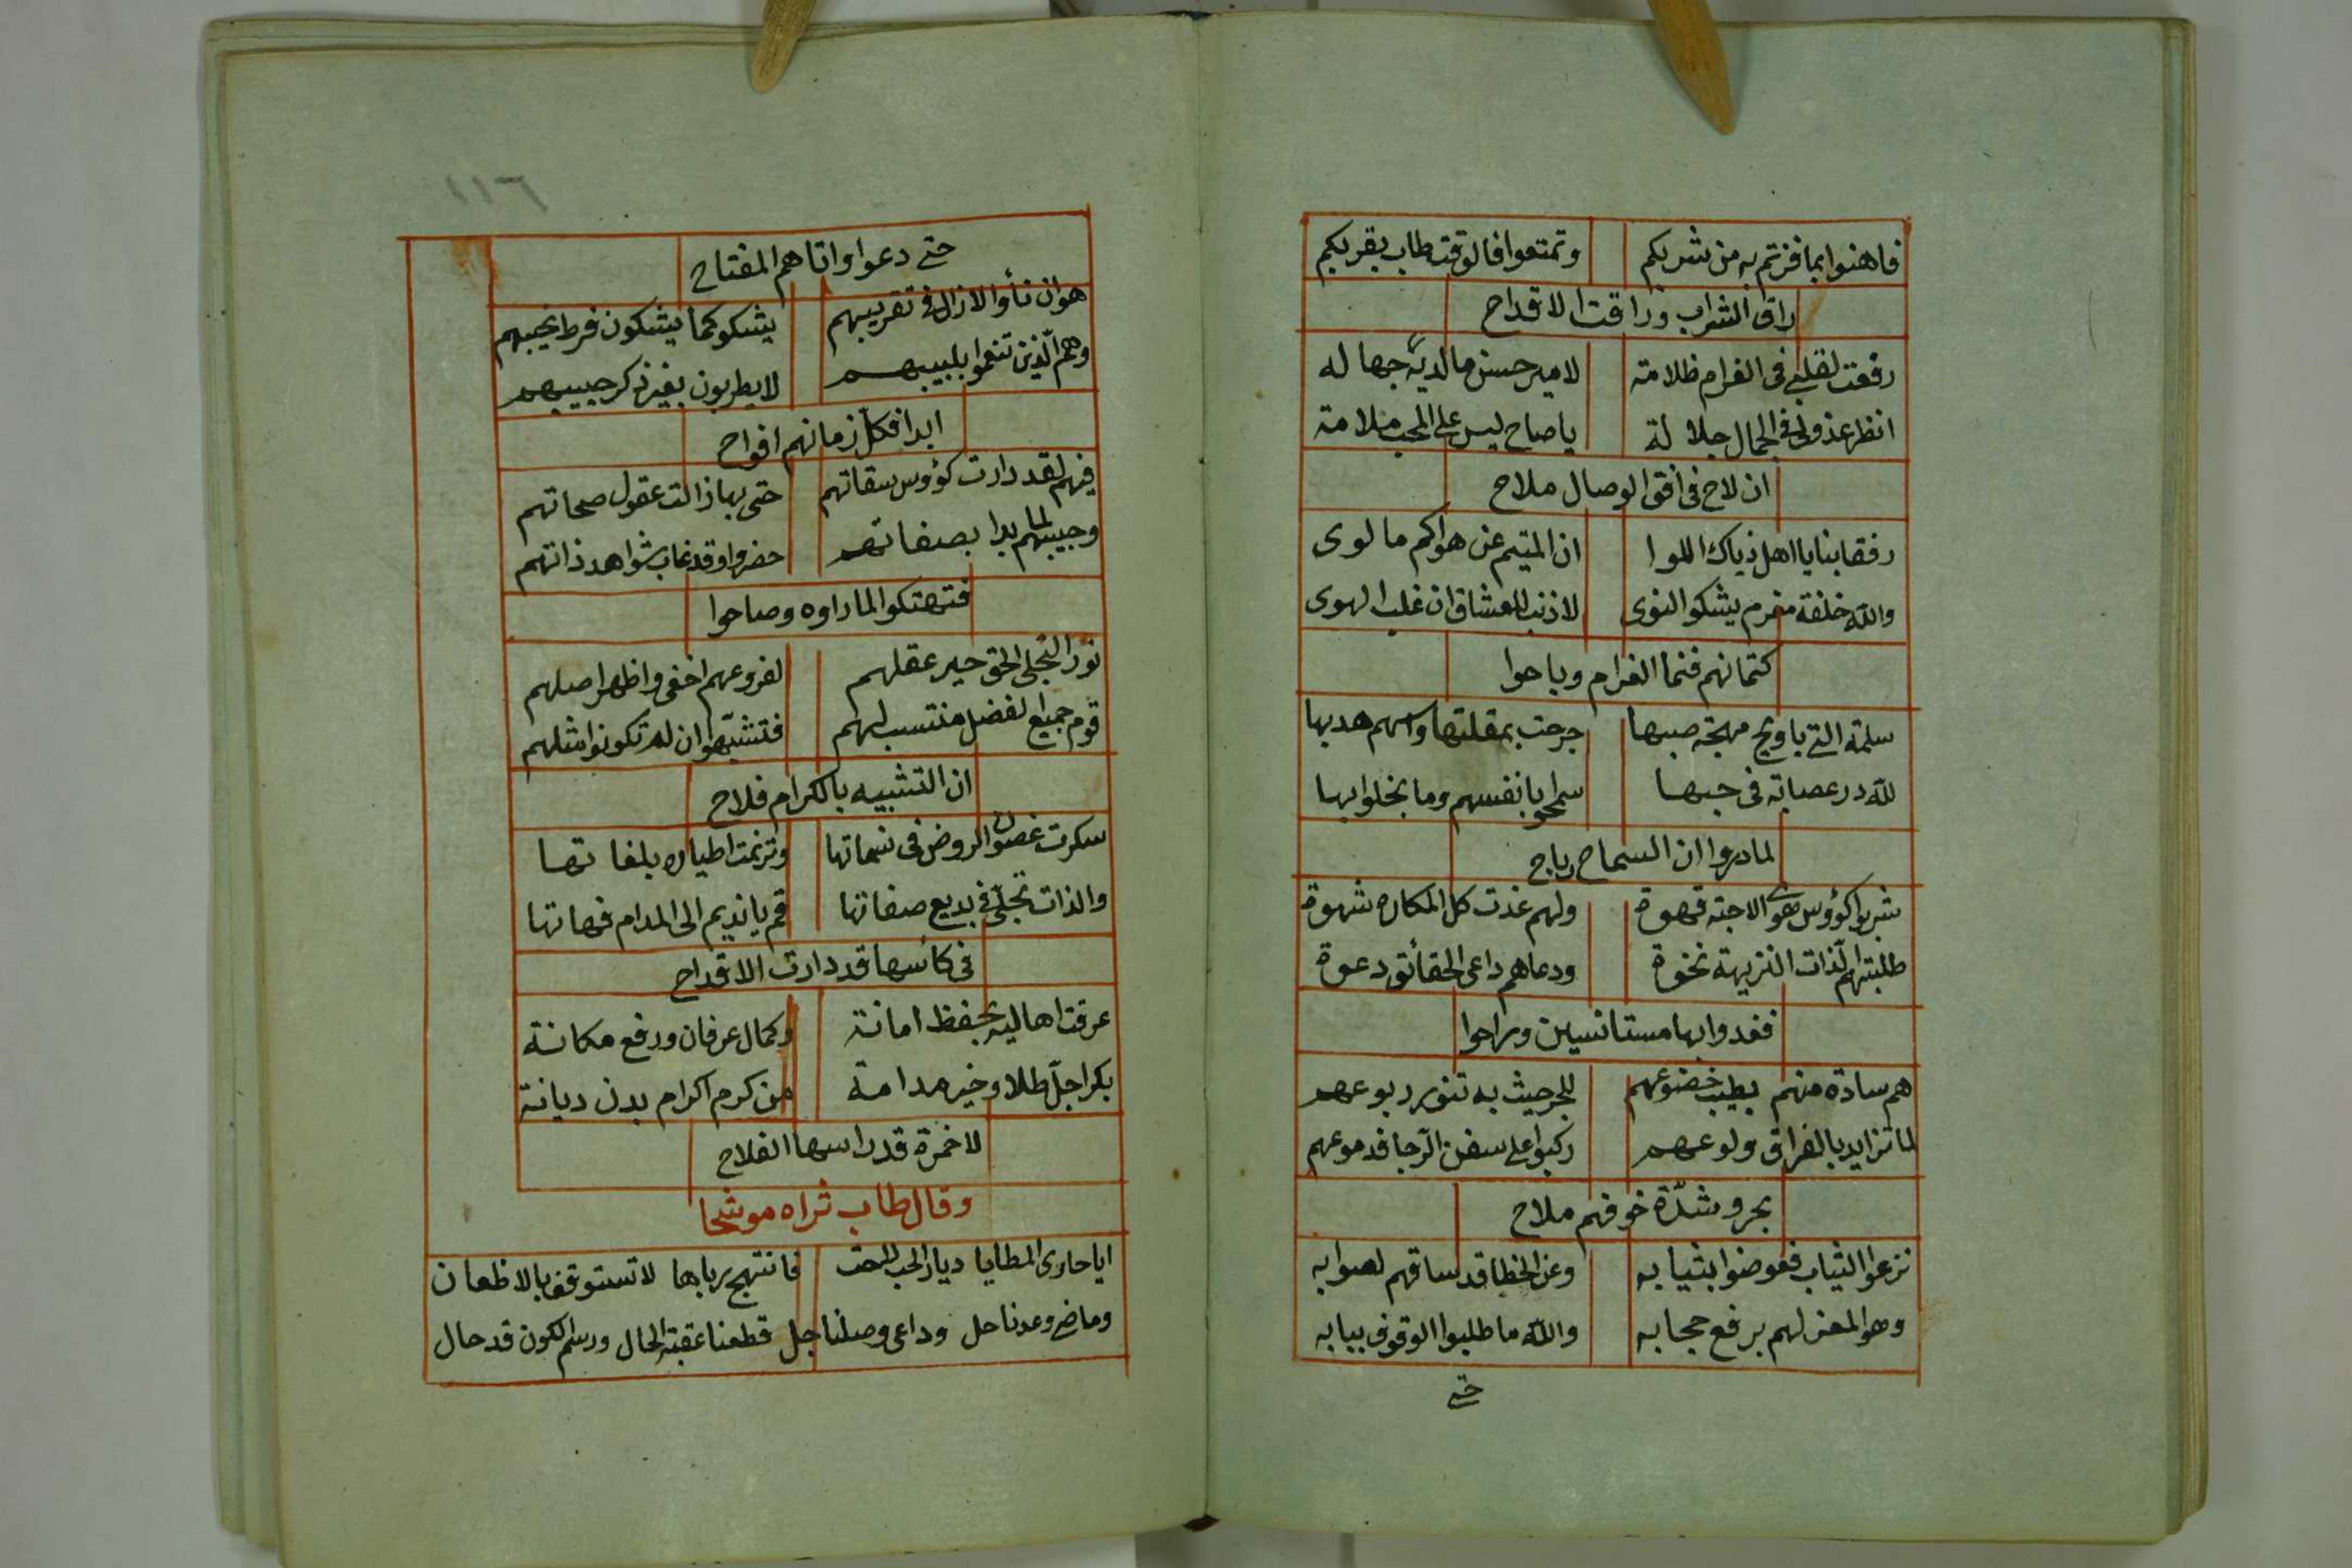 فاهنوا بما فزتم به من شربكم وتمتعوا فالوقت طاب بقربكم
راق الشراب وراقت الاقداح
رفعت لقلبي في الغرام ظلامة لامير حسن مالديه جهاله
انظر عذولي في الجمال جلالة ياصاح ليس على المحب ملامة
ان لاح في افق الوصال ملاح
رفقا بنا يا اهل ذياك اللوا ان المتيم عن هواكم ما لوى
والله خلفه مغرم يشكو النوى لاذنب للعشاق ان غلب الهوى
كتمانهم فنما الغرام وباحوا
سلمة التي ياويح مهجة صبها جرحت بمقلتها واسهم هدبها
لله در عصابة في حبها سمحوا بانفسهم وما بخلوا بها
لما دروا ان السماح رباح
شربوا كؤوس هوى الاحبة قهوة ولهم غدت كل المكاره شهوة
طلبتهم الذات النزيهة نخوة ودعاهم داعي الحقائق دعوة
فغدوا بها مستانسين وراحوا
هم سادة منهم بطيب خضوعهم للجر حيث به تنور ربوعهم
لما تزايد بالفراق ولوعهم ركبوا على سفن الرجا فدموعهم
بحر وشدّة خوفهم ملاح
نزعوا الثياب فعوضوا بثيابه وعن الخطا قد ساقهم لصوابه
وهو المعز لهم برفع حجابه والله ما طلبوا الوقوف ببابه
حتى
١١٦
حتى دعوا واتاهم المفتاح
هو ان نأوا لازال في تقريبهم يشكو كما يشكون فرط نحيبهم
وهم الّذين تنعموا بلبيبهم لايطربون بغير ذكر حبيبهم
ابدا فكل زمانهم افراح
فيهم لقد دارت كؤوس سقاتهم حتى بها زالت عقول صحاتهم
وحبيبهم لما بدا بصفاتهم حضروا وقد غاب شواهد ذاتهم
فتهتكوا لما راوه وصاحوا
نور التجلي الحق حير عقلهم لفروعهم اخفى واظهر اصلهم
قوم جميع الفضل منتسب لهم فتشبّهوا ان لم تكونوا مثلهم
ان التشبيه بالكرام فلاح
سكرت غصون الروض في نسماتها وترنمت اطياره بلغاتها
والذات تجلى في بديع صفاتها قم يا نديم الى المدام فهاتها
في كأسها قد دارت الاقداح
عرفت اهاليه بحفظ امانة وكمال عرفان ورفع مكانة
بكر اجلّ طلا وخير مدامة من كرم اكرام بدن ديانة
لاخمرة قد داسها الفلاح
وقال طاب ثراه موشحا
ايا حادي المطايا ديار الحب للحت فانتهج برباها لاتستوقف بالاظعان
وماضي وعدنا حل وداعي وصلنا جل قطعنا عقبة الحال ورسم الكون قد حال